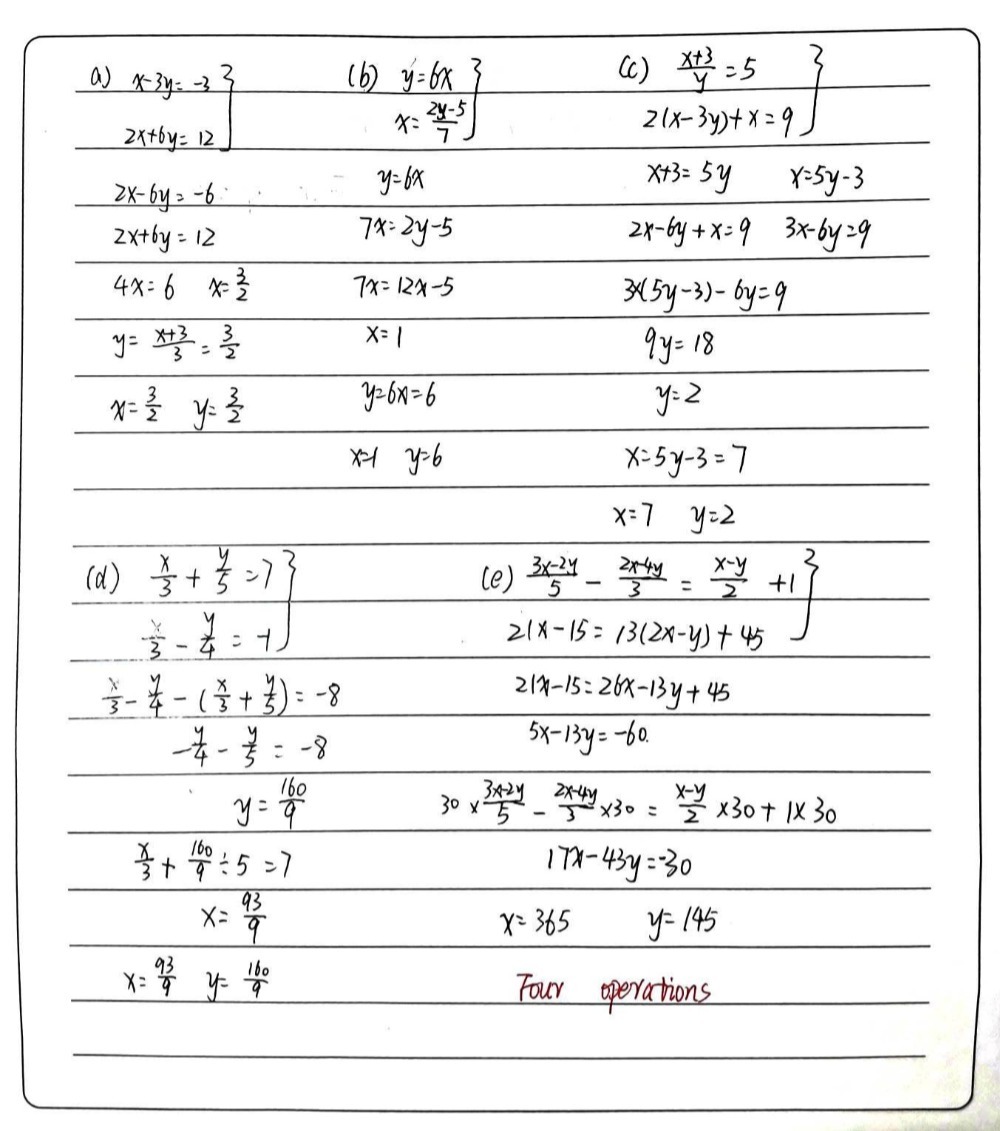 a) x-3y=-3
2x+6y=12
2x-6y=-6
2x+6y=12
4x=6 x=3/2
y=(x+3)/3=3/2
x=3/2 y=3/2
(b) y=6x
x=(2y-5)/7
y=6x
7x=2y-5
7x=12x-5
x=1
y=6x=6
x=1 y=6
(c) (x+3)/y=5
2(x-3y)+x=9
x+3=5y x=5y-3
2x-6y+x=9 3x-6y=9
3×(5y-3)-6y=9
9y=18
y=2
x=5y-3=7
x=7 y=2
(d) x/3+y/5=7
x/3-y/4=-1
x/3-y/4-(x/3+y/5)=-8
-y/4-y/5=-8
y=160/9
x/3+160/9÷5=7
x=93/9
x=93/9 y=160/9
(e) (3x-2y)/5-(2x-4y)/3=(x-y)/2+1
21x-15=13(2x-y)+45
21x-15=26x-13y+45
5x-13y=-60.
30×(3x-2y)/5-(2x-4y)/3×30=(x-y)/2×30+1×30
17x-43y=-30
x=365 y=145
Four operations